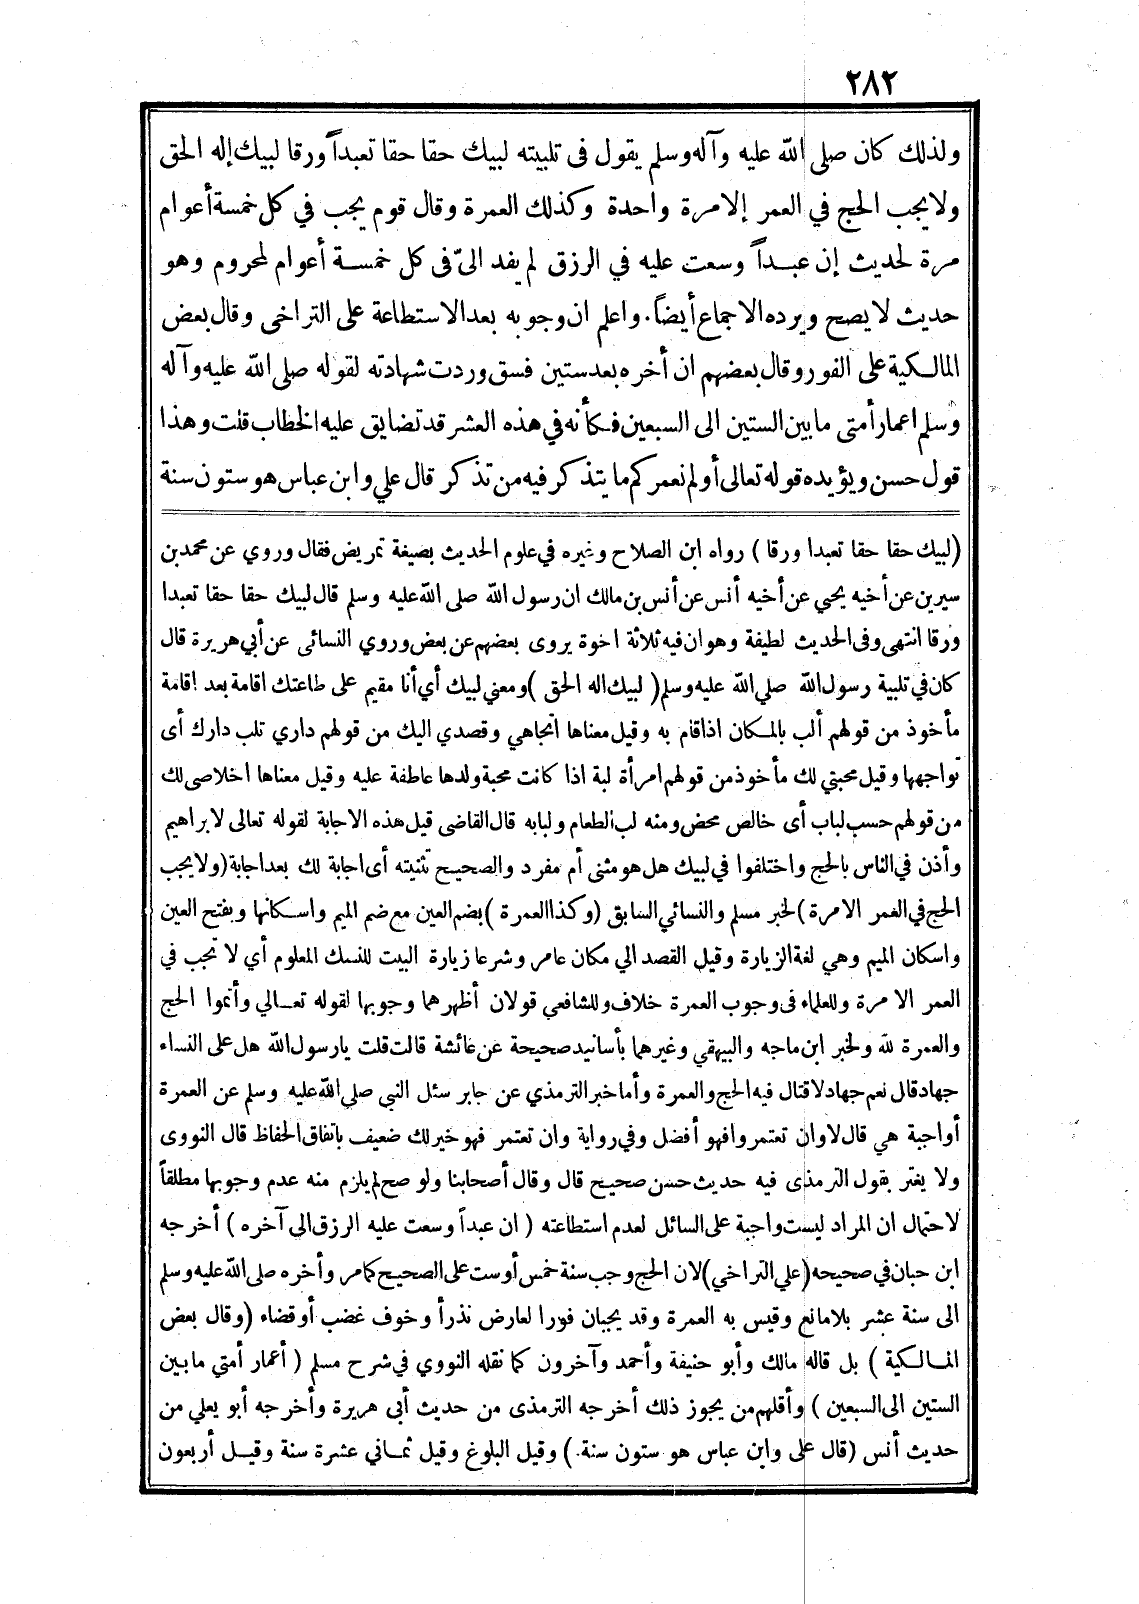 ٢٨٢
ولذلك كان صلى الله عليه وآله وسلم يقول فى تلبيته لبيك حقا حقا تعبداً ورقا لبيك إله الحق
ولا يجب الحج في العمر إلا مرة واحدة وكذلك العمرة وقال قوم يجب في كل خمسة أعوام
مرة لحديث إن عبداً وسعت عليه في الرزق لم يفد الىّ فى كل خمسة أعوام لمحروم وهو
حديث لا يصح ويرده الاجماع أيضاً. واعلم ان وجوبه بعد الاستطاعة على التراخى وقال بعض
المالكية على الفور وقال بعضهم ان أخره بعد ستين فسق وردت شهادته لقوله صلى الله عليه وآله
وسلم اعمار أمتى ما بين الستين الى السبعين فكأنه في هذه العشر قد تضايق عليه الخطاب قلت وهذا
قول حسن ويؤيده قوله تعالى أولم نعمركم ما يتذكر فيه من تذكر قال علي وابن عباس هو ستون سنة
(لبيك حقا حقا تعبدا ورقا ) رواه ابن الصلاح وغيره في علوم الحديث بصيغة تمريض فقال وروي عن محمد بن
سيرين عن أخيه يحيى عن أخيه أنس عن أنس بن مالك ان رسول الله صلى الله عليه وسلم قال لبيك حقا حقا تعبدا
ورقا انتهى وفى الحديث لطيفة وهو ان فيه ثلاثة اخوة يروى بعضهم عن بعض وروي النسائى عن أبي هريرة قال
كان في تلبية رسول الله صلي الله عليه وسلم ( لبيك اله الحق ) ومعني لبيك أي أنا مقيم على طاعتك اقامة بعد اقامة
مأخوذ من قولهم ألب بالمكان اذا قام به وقيل معناها اتجاهي وقصدي اليك من قولهم داري تلب دارك أى
تواجهها وقيل محبتي لك مأخوذ من قولهم امرأة لبة اذا كانت محبة ولدها عاطفة عليه وقيل معناها اخلاصى لك
من قولهم حسب لباب أى خالص محض ومنه لب الطعام ولبابه قال القاضى قيل هذه الاجابة لقوله تعالى لابراهيم
وأذن في الناس بالحج واختلفوا في لبيك هل هو مثنى أم مفرد والصحيح تثنيته أى اجابة لك بعد اجابة (ولا يجب
الحج في العمر الا مرة) لخبر مسلم والنسائي السابق (وكذا العمرة ) بضم العين مع ضم الميم واسكانها وبفتح العين
واسكان الميم وهي لغة الزيارة وقيل القصد الي مكان عامر وشرعا زيارة البيت للنسك المعلوم أي لا تجب في
العمر الا مرة وللعلماء فى وجوب العمرة خلاف وللشافعي قولان أظهرهما وجوبها لقوله تعالي وأتموا الحج
والعمرة لله ولخبر ابن ماجه والبيهقي وغيرهما بأسانيد صحيحة عن عائشة قالت قلت يا رسول الله هل على النساء
جهاد قال نعم جهاد لا قتال فيه الحج والعمرة وأما خبر الترمذي عن جابر سئل النبي صلى الله عليه وسلم عن العمرة
أواجبة هي قال لا وان تعتمروا فهو أفضل وفي رواية وان تعتمر فهو خير لك ضعيف باتفاق الحفاظ قال النووى
ولا يغتر بقول الترمذى فيه حديث حسن صحيح قال وقال أصحابنا ولو صح لم يلزم منه عدم وجوبها مطلقاً
لاحتمال ان المراد ليست واجبة على السائل لعدم استطاعته ( ان عبداً وسعت عليه الرزق الى آخره ) أخرجه
ابن حبان في صحيحه (علي التراخي) لان الحج وجب سنة خمس أوست على الصحيح كما مر وأخره صلى الله عليه وسلم
الى سنة عشر بلا مانع وقيس به العمرة وقد يجبان فورا لعارض نذراً وخوف غضب أوقضاء (وقال بعض
المالكية ) بل قاله مالك وأبو حنيفة وأحمد وآخرون كما نقله النووي في شرح مسلم ( أعمار أمتي ما بين
الستين الى السبعين ) وأقلهم من يجوز ذلك أخرجه الترمذى من حديث أبى هريرة وأخرجه أبو يعلي من
حديث أنس (قال على وابن عباس هو ستون سنة ) وقيل البلوغ وقيل ثماني عشرة سنة وقيل أربعون